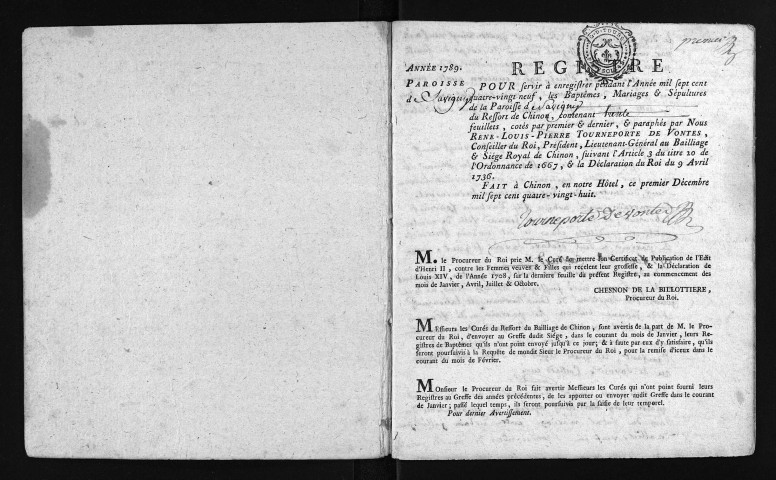 premier
ANNÉE 1789.
REGISTRE
PAROISSE
de Savigny
POUR servir à enregistrer pendant l'Année mil sept cent
quatre-vingt neuf, les Baptêmes, Mariages & Sépultures
de la Paroisse de Savigny
du Ressort de Chinon, contenant trente
feuillets, cotés par premier & dernier, & paraphés par Nous
RENE-LOUIS-PIERRE TOURNEPORTE DE VONTES,
Conseiller du Roi, Président, Lieutenant-Général au Bailliage
& Siége Royal de Chinon, suivant l'Article 3 du titre 20 de
l'Ordonnance de 1667, & la Déclaration du Roi du 9 Avril
1736.
FAIT à Chinon, en notre Hôtel, ce premier Décembre
mil sept cent quatre-vingt-huit.
Tourneporte de Vontes
M. le Procureur du Roi prie M. le Curé de mettre son Certificat de Publication de l'Edit
d'Henri II, contre les Femmes veuves & Filles qui recelent leur grossesse, & la Déclaration de
Louis XIV, de l'Année 1708, sur la derniere feuille du présent Registre, au commencement des
mois de Janvier, Avril, Juillet & Octobre.
CHESNON DE LA BILLOTTIERE,
Procureur du Roi.
Messieurs les Curés du Ressort du Bailliage de Chinon, sont avertis de la part de M. le Pro-
cureur du Roi, d'envoyer au Greffe dudit Siége, dans le courant du mois de Janvier, leurs Re-
gistres de Baptêmes qu'ils n'ont point envoyé jusqu'à ce jour; & à faute par eux d'y satisfaire, qu'ils
seront poursuivis à la Requête de mondit Sieur le Procureur du Roi, pour la remise d'iceux dans le
courant du mois de Février.
Monsieur le Procureur du Roi fait avertir Messieurs les Curés qui n'ont point fourni leurs
Registres au Greffe des années précédentes, de les apporter ou envoyer audit Greffe dans le courant
de Janvier; passé lequel temps, ils seront poursuivis par la saisie de leur temporel.
Pour dernier Avertissement.